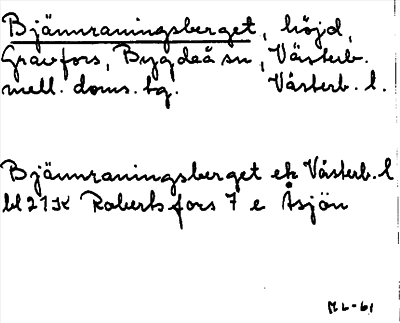 Bjännraningsberget, höjd,
Gravfors, Bygdeå sn, Västerb.
mell. doms. tg. Västerb. l.
Bjännraningsberget ek Västerb. l
bl 21K Robertsfors 7 e Åsjön
ML-61